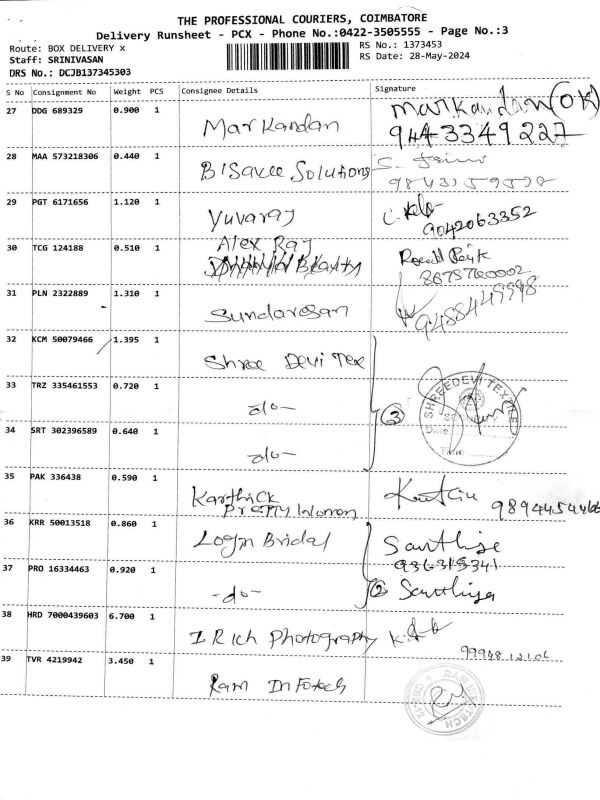 THE PROFESSIONAL COURIERS, COIMBATORE
Delivery Runsheet - PCX - Phone No.:0422-3505555 - Page No.:3
Route: BOX DELIVERY x
Staff: SRINIVASAN
DRS No.: DCJB137345303
RS No.: 1373453
RS Date: 28-May-2024
S No Consignment No Weight PCS Consignee Details Signature
27 DDG 689329 0.900 1 Markandan Markandan (OK)
9443349227
28 MAA 573218306 0.440 1 BISavee Solutions
29 PGT 6171656 1.120 1 Yuvaraj
9042063352
30 TCG 124188 0.510 1 Alex Raj
8675760002
31 PLN 2322889 1.310 1 Sundaresan
9488449998
32 KCM 50079466 1.395 1 Shree Devi Tex
33 TRZ 335461553 0.720 1 -do- 3 SHREEDEVI TEXTILE
34 SRT 302396589 0.640 1 -do-
35 PAK 336438 0.590 1 Karthick
Pretty Women
36 KRR 50013518 0.860 1 Login Bridal
37 PRO 16334463 0.920 1 -do- 2
38 HRD 7000439603 6.700 1 I Rich Photography
39 TVR 4219942 3.450 1 Ram Infotech